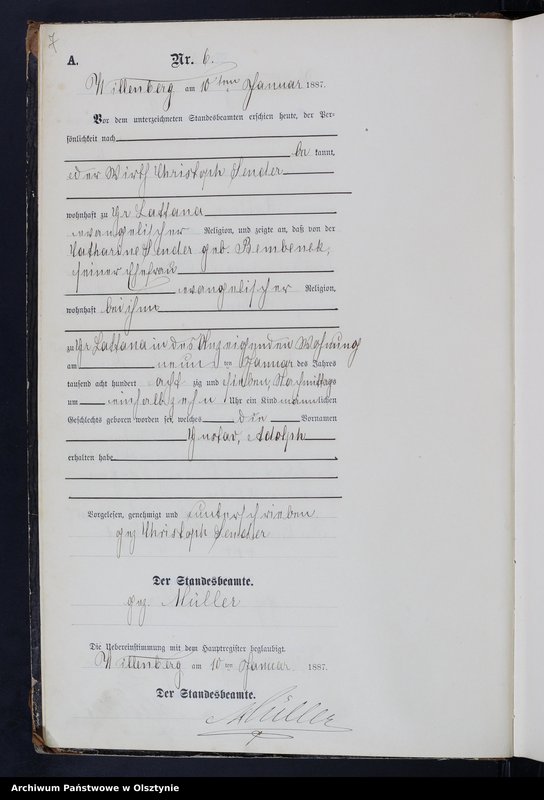 7
A. Nr. 6.
Willenberg am 10ten Januar 1887.
Vor dem unterzeichneten Standesbeamten erschien heute, der Per-
sönlichkeit nach
be kannt,
der Wirth Christoph Sender
wohnhaft zu Gr Lattana
evangelischer Religion, und zeigte an, daß von der
Katharine Sender geb. Bembenek,
seiner Ehefrau
evangelischer Religion,
wohnhaft bei ihm
zu Gr Lattana in des Anzeigenden Wohnung
am neun ten Januar des Jahres
tausend acht hundert acht zig und sieben Nachmittags
um einhalb zehn Uhr ein Kind männlichen
Geschlechts geboren worden sei, welches die Vornamen
Gustav, Adolph
erhalten habe.
Vorgelesen, genehmigt und unterschrieben
gez Christoph Sender
Der Standesbeamte.
gez. Müller
Die Uebereinstimmung mit dem Hauptregister beglaubigt.
Willenberg am 10ten Januar 1887.
Der Standesbeamte.
Müller
Archiwum Państwowe w Olsztynie